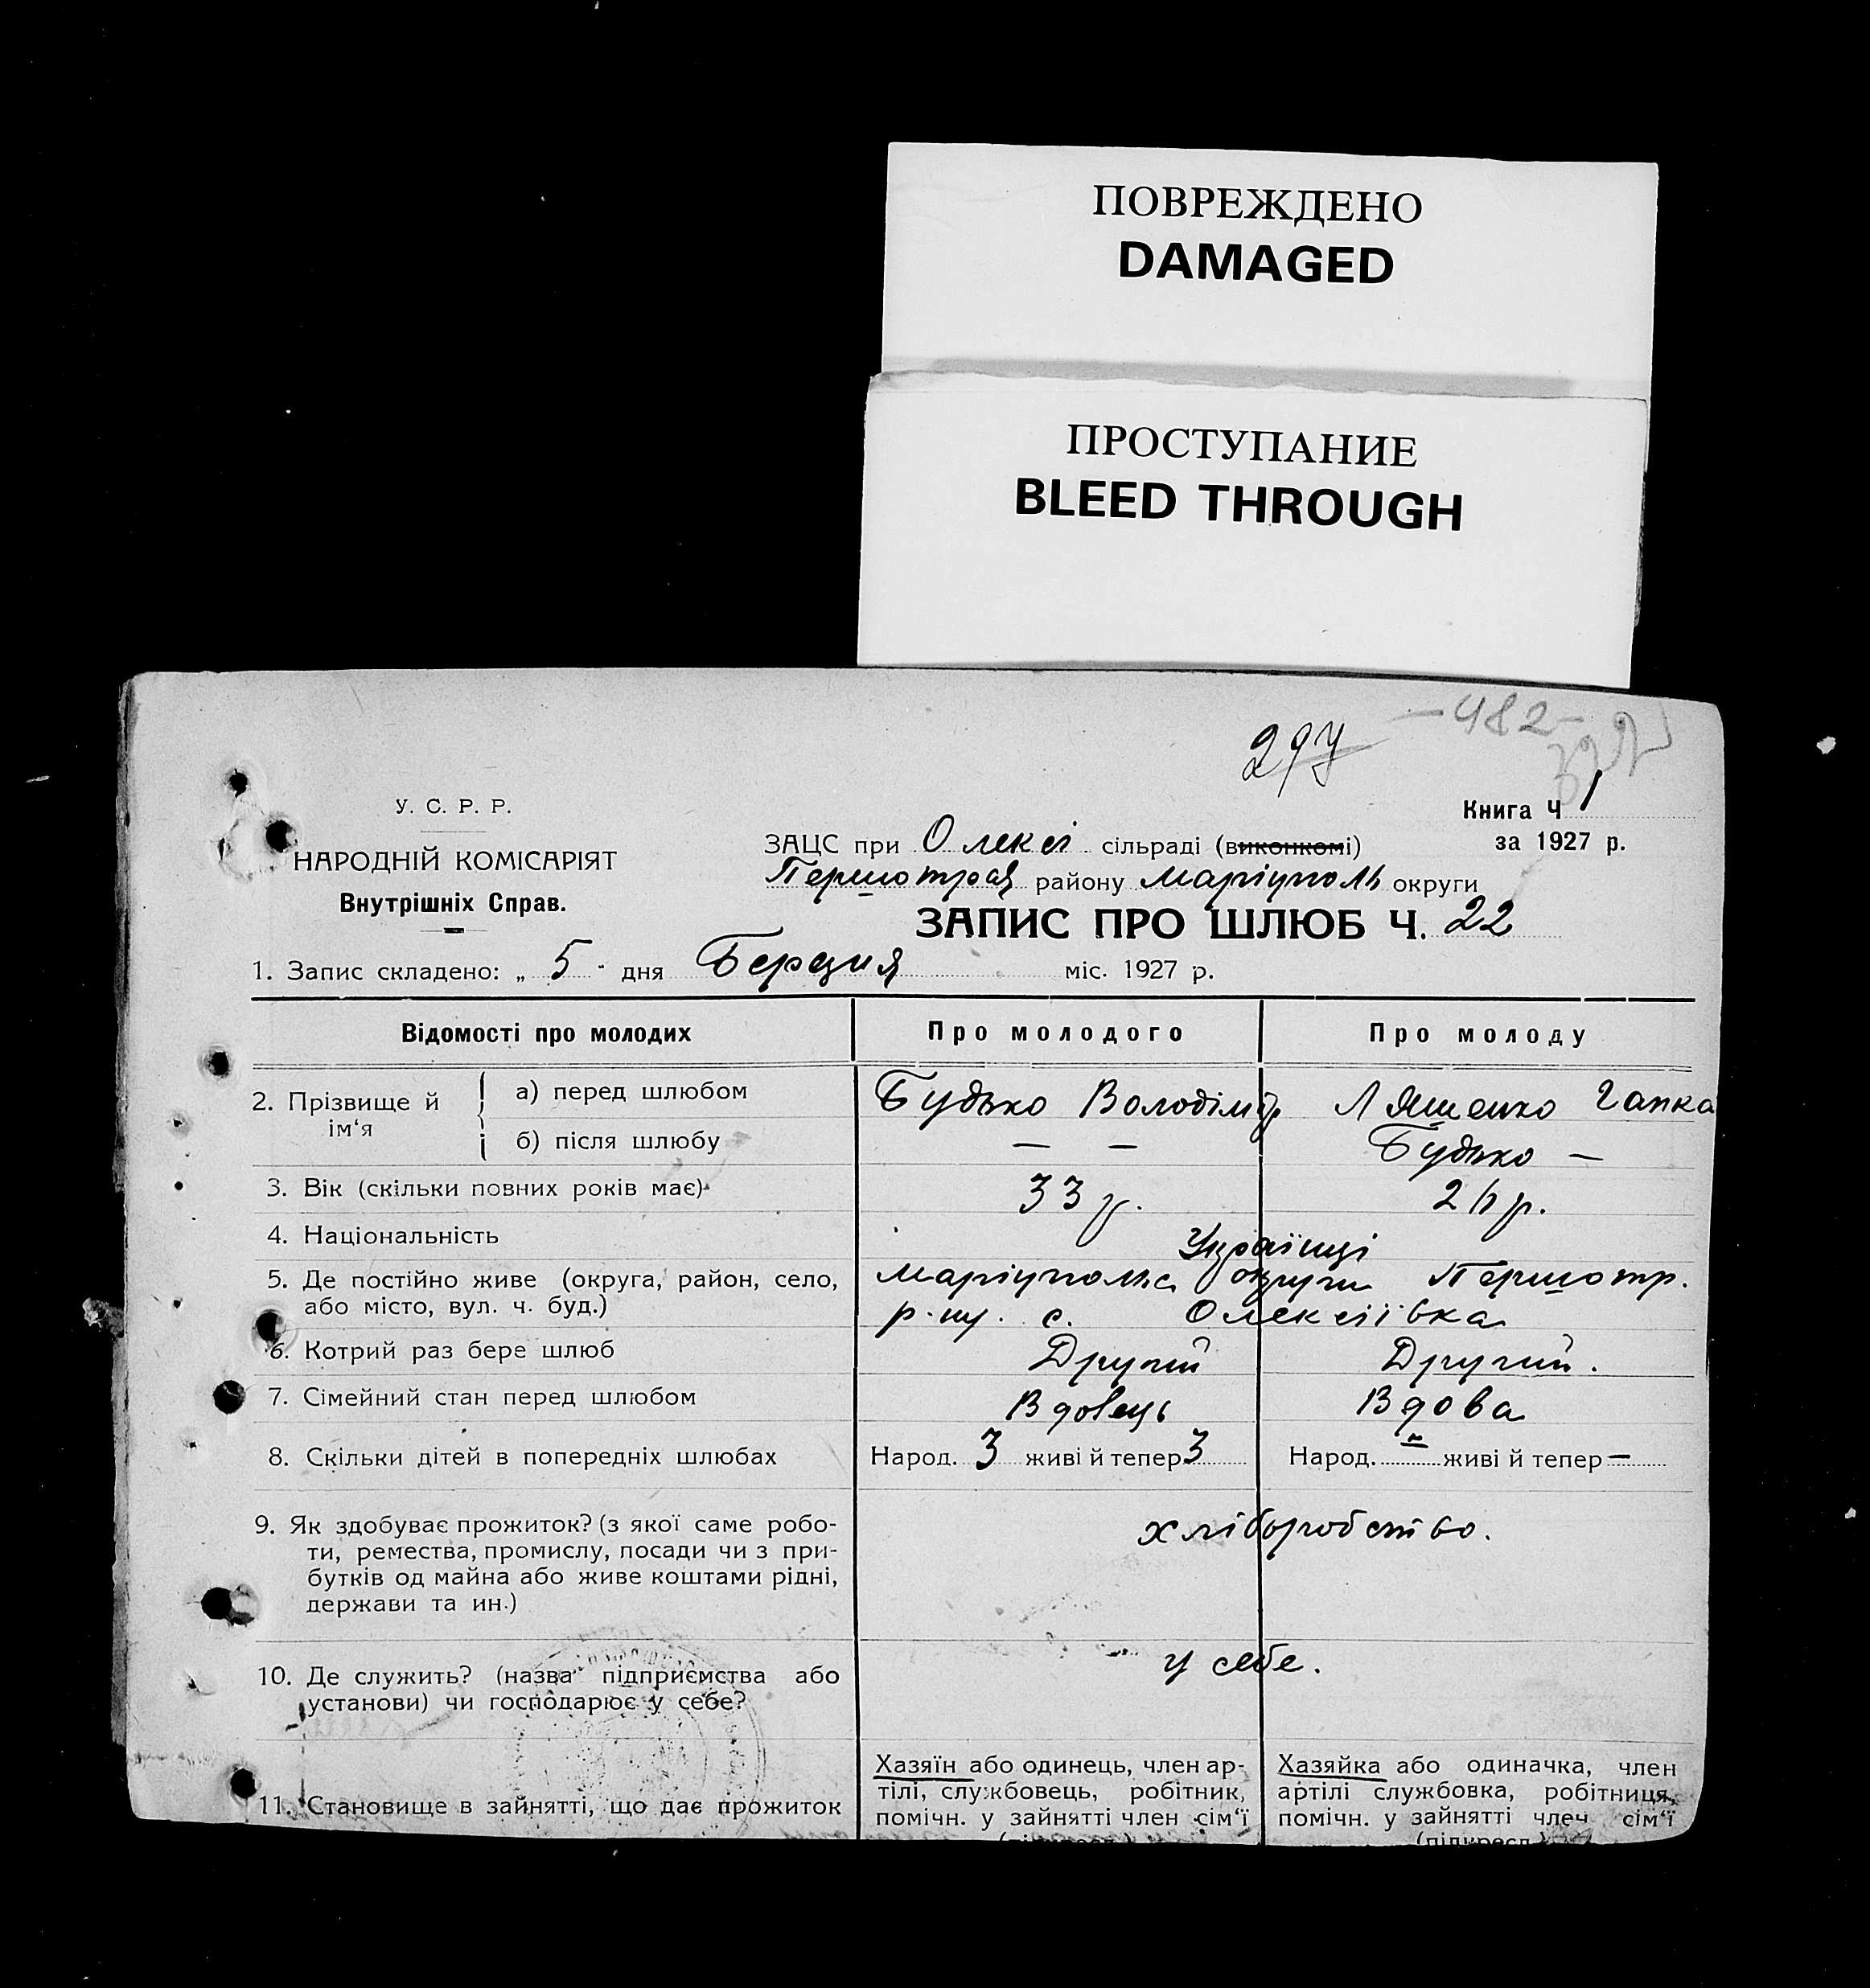 ПОВРЕЖДЕНО
DAMAGED
ПРОСТУПАНИЕ
BLEED THROUGH
-482-
297
У. С. Р. Р.
НАРОДНІЙ КОМІСАРІЯТ
Внутрішніх Справ.
Книга Ч 1
за 1927 р.
ЗАЦС при Олексі сільраді (виконкомі)
Першотрав району Маріуполь округи
ЗАПИС ПРО ШЛЮБ Ч. 22
1. Запис складено: „ 5 " дня Березня міс. 1927 р.
Відомості про молодих Про молодого Про молоду
2. Прізвище й ім‘я
а) перед шлюбом Будько Володімір Ляшенко Гапка
б) після шлюбу — — Будько —
3. Вік (скільки повних років має) 33 р. 26 р.
4. Національність Українці
5. Де постійно живе (округа, район, село, Маріупольс округи Першотр.
або місто, вул. ч. буд.) р-ну. с. Олексіївка
6. Котрий раз бере шлюб Другий Другий.
7. Сімейний стан перед шлюбом Вдовець Вдова
8. Скільки дітей в попередніх шлюбах Народ. 3 живі й тепер 3 Народ. – живі й тепер –
9. Як здобуває прожиток? (з якої саме робо- хліборобство.
ти, ремества, промислу, посади чи з при-
бутків од майна або живе коштами рідні,
держави та ин.)
10. Де служить? (назва підприємства або у себе.
установи) чи господарює у себе?
11. Становище в зайнятті, що дає прожиток
Хазяїн або одинець, член ар-
тілі, службовець, робітник,
помічн. у зайнятті член сім‘ї
Хазяйка або одиначка, член
артілі службовка, робітниця,
помічн. у зайнятті член сім‘ї
(підкресл.)